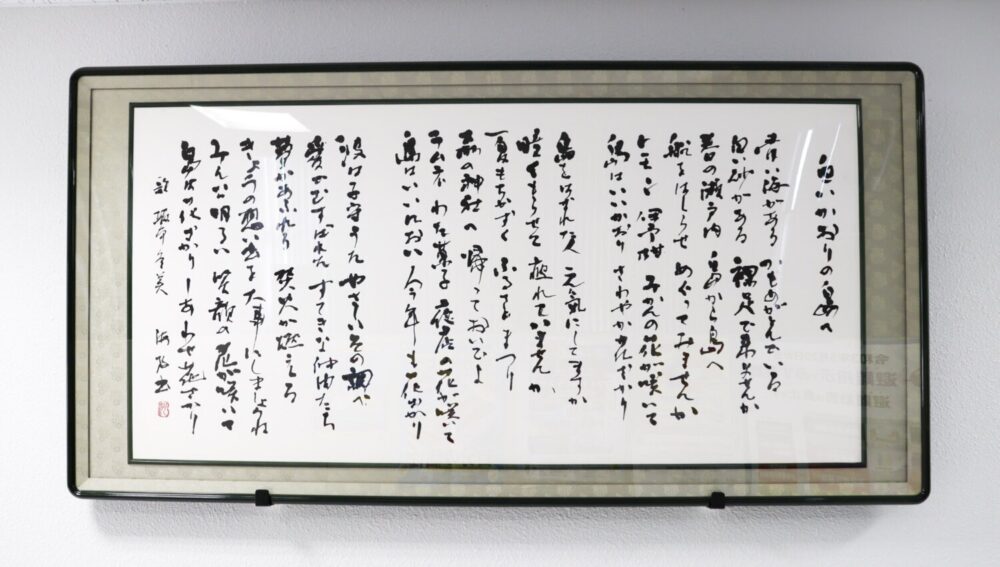 白いかおりの島へ
青い海がある かもめがとんでいる
白い砂がある 裸足で来ませんか
春の瀬戸内 島から島へ
船をはしらせ めぐってみませんか
レモン 伊予柑 みかんの花が咲いて
島はいいかおり さわやか花ざかり
島をはなれた友 元気にしてますか
暗くもらせて 疲れていませんか
夏もちかずく ふるさとまつり
森の神社へ 帰っておいでよ
ラムネ わた菓子 夜店の花が咲いて
島はいいにおい 今年も花ざかり
波は子守うた やさしいその調べ
愛でむすばれた すてきな仲間たち
夢があふれる 炎が燃える
きょうの想い出を 大事にしましょうね
みんな明るい 笑顔の花咲いて
島はのびざかり しあわせ花ざかり
詩
書